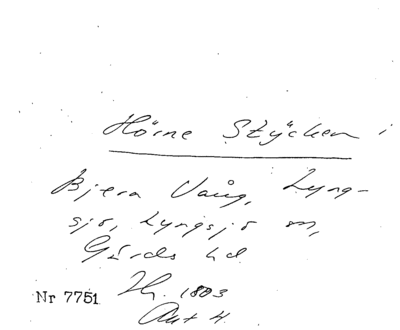 Hörne Stycken i
Bjera Vång, Lyng-
sjö, Lyngsjö sn,
Gärds hd
Nr 7751 1803
Akt 4.